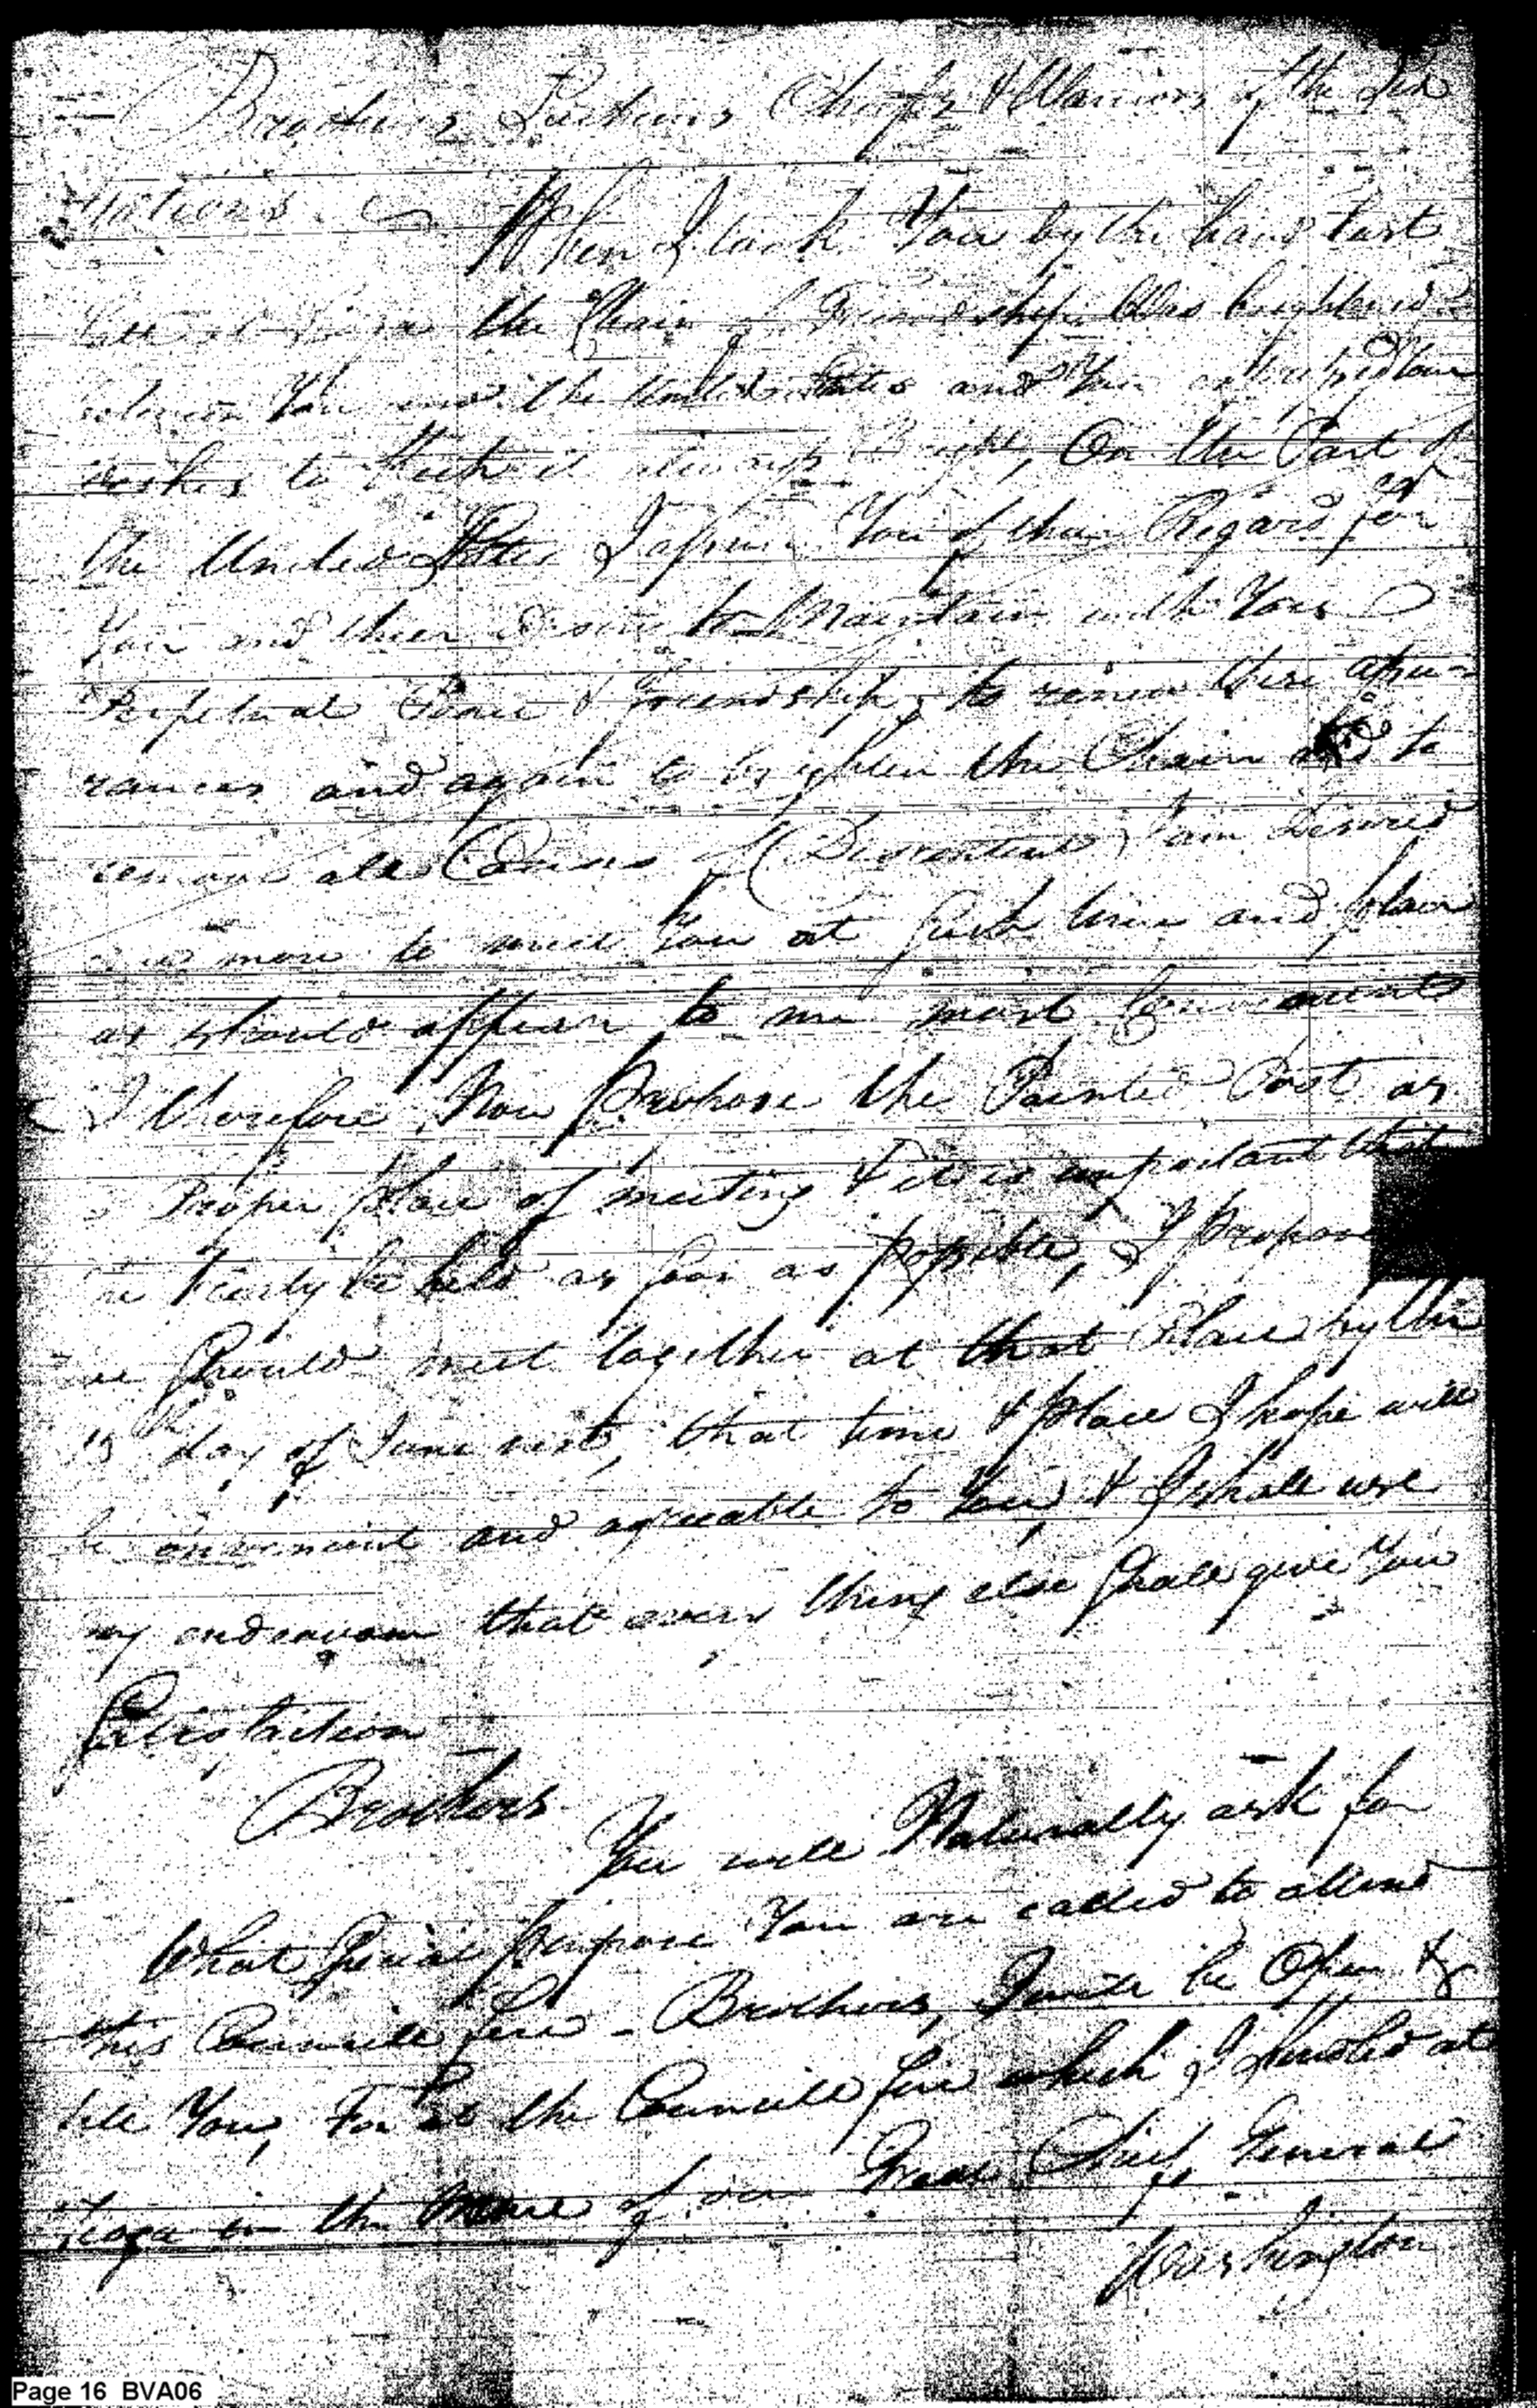 Brothers Sachims Chiefs & Warriors of the Six
Nations
When I took You by the hand last
the Chain of Friendship Was brightned
between You and the United States and You
wishes to Keep it always Bright, On the Part of
the United States I assure You of their Regard for
You and their desire to Maintain with You
Perpetual Peace & Friendship, to renew these assu=
rances and again to brighten the Chain and to
remove all Causes of Discontent I am desired
once more to meet You at such time and place
as should appear to me most Convenient
I therefore Now propose the Painted Post as
Proper place of meeting & it is important that
Treaty be held as soon as possible, I propose
we should meet together at that Place by the
15th day of June next, that time & place I hope will
be convenient and agreeable to You & I shall use
my endeavour that every thing else shall give You
Satisfaction
Brothers
You will Naturally ask for
What special purpose You are called to attend
this Councill fire - Brothers, I will be Open &
tell You, For at the Councill fire which I kindled at
Tioga in the Name of our Great Chief General
Washington
Page 16 BVA06